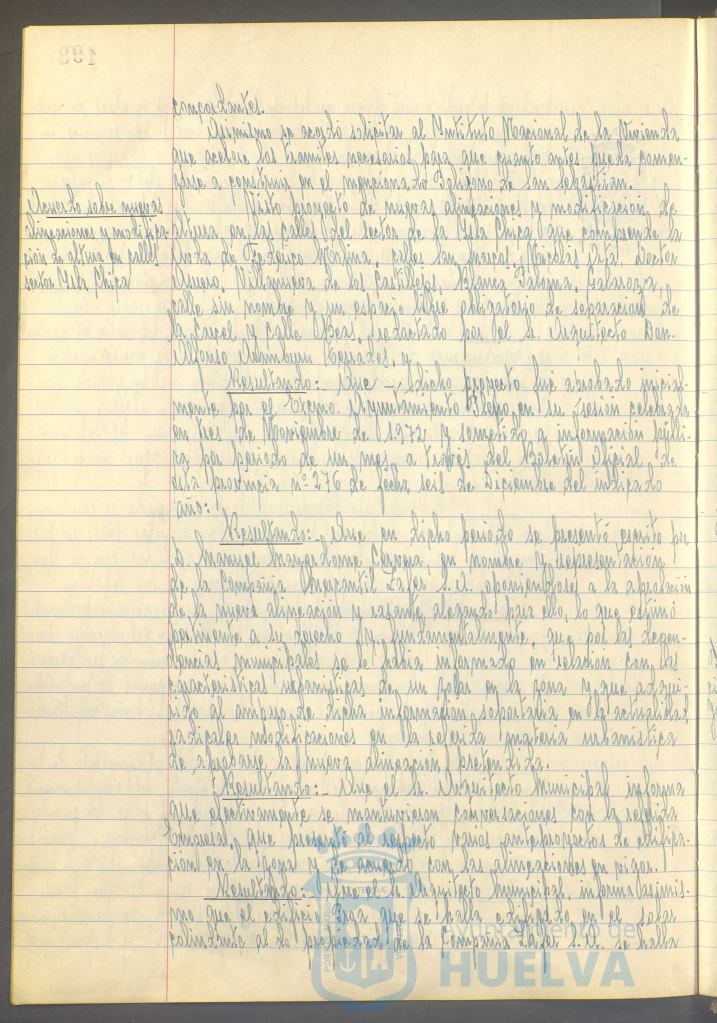 concordantes.
Asimismo se acordó solicitar al Instituto Nacional de la Vivienda
que acelere los tramites necesarios para que cuanto antes pueda comen-
zarse a construir en el mencionado Poligono de San Sebastián.
Acuerdo sobre nuevas
alineaciones y modifica
ción de altura en calles
sector Isla Chica
Visto proyecto de nuevas alineaciones y modificación de
altura en las calles del sector de la Isla Chica que comprende la
Avda de Federico Molina, calles San Marcos, Nicolás Orta, Doctor
Rubio, Villanueva de los Castillejos, Blanca Paloma, Galaroza,
calle sin nombre y un espacio libre obligatorio de separación de
la Carcel y calle Beas, redactado por el Sr. Arquitecto Don
Alfonso Aramburu Terrades, y
Resultando: Que dicho proyecto fué aprobado inicial-
mente por el Excmo. Ayuntamiento Pleno en su sesión celebrada
en tres de Noviembre de 1972 y sometido a información públi-
ca por periodo de un mes a través del Boletin Oficial de
esta provincia nº 276 de fecha seis de Diciembre del indicado
año:
Resultando:- Que en dicho periodo se presentó escrito por
D. Manuel Mayordomo Cervera, en nombre y representación
de la Compañia Mercantil Layer S.A. oponiendose a la aprobación
de la nueva alineación y rasante alegando para ello, lo que estimó
pertinente a su derecho y, fundamentalmente, que por las depen-
dencias municipales se le habia informado en relación con las
caracteristicas urbanisticas de un solar en la zona y que adqui-
rido al amparo de dicha información soportaria en la actualidad
radicales modificaciones en la referida materia urbanistica
de aprobarse la nueva alineación pretendida.
Resultando:- Que el Sr. Arquitecto Municipal informa
que efectivamente se mantuvieron conversaciones con la referida
Empresa, que presentó al respecto varios anteproyectos de edifica-
ción en la zona y de acuerdo con las alineaciones en vigor.
Resultando:- Que el Sr. Arquitecto Municipal, informa asimis-
mo que el edificio que se halla edificado en el solar
colindante al de propiedad de la Compañia Layer S.A. se halla
Ayuntamiento de
HUELVA